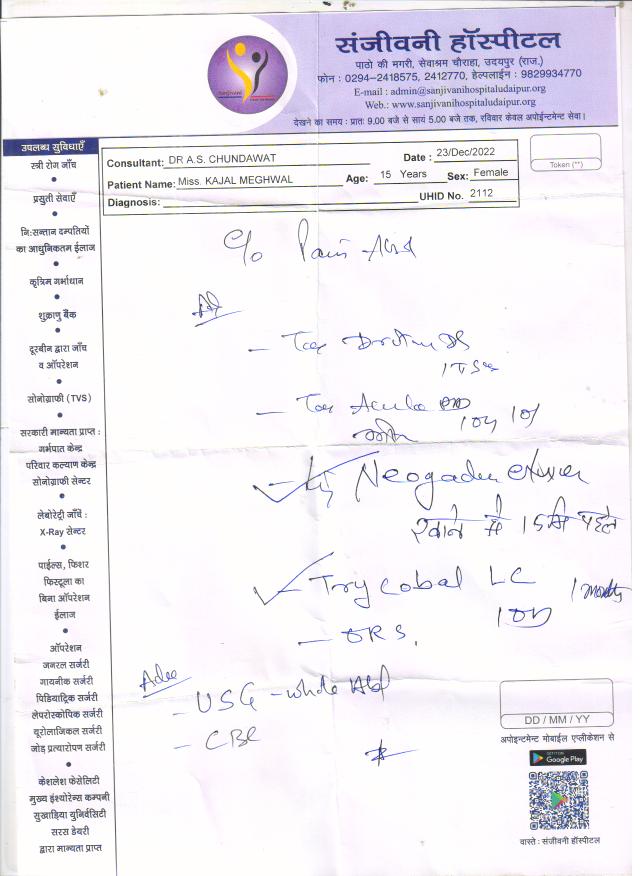 संजीवनी हॉस्पीटल
पाठो की मगरी, सेवाश्रम चौराहा, उदयपुर (राज.)
फोन : 0294-2418575, 2412770, हेल्पलाईन : 9829934770
E-mail : admin@sanjivanihospitaludaipur.org
Web.: www.sanjivanihospitaludaipur.org
देखने का समय : प्रातः 9.00 बजे से सायं 5.00 बजे तक, रविवार केवल अपोईन्टमेन्ट सेवा।
Sanjivani
Consultant: DR A.S. CHUNDAWAT Date : 23/Dec/2022
Patient Name: Miss. KAJAL MEGHWAL Age: 15 Years Sex: Female
Diagnosis: UHID No. 2112
Token (**)
उपलब्ध सुविधाएँ
स्त्री रोग जाँच
प्रसुती सेवाएँ
नि:सन्तान दम्पतियों
का आधुनिकतम ईलाज
कृत्रिम गर्भाधान
शुक्राणु बैंक
दूरबीन द्वारा जाँच
व ऑपरेशन
सोनोग्राफी (TVS)
सरकारी मान्यता प्राप्त :
गर्भपात केन्द्र
परिवार कल्याण केन्द्र
सोनोग्राफी सेन्टर
लेबोरेट्री जाँचें :
X-Ray सेन्टर
पाईल्स, फिशर
फिस्टूला का
बिना ऑपरेशन
ईलाज
ऑपरेशन
जनरल सर्जरी
गायनीक सर्जरी
पिडियाट्रिक सर्जरी
लेपरोस्कोपिक सर्जरी
यूरोलाजिकल सर्जरी
जोड़ प्रत्यारोपण सर्जरी
केशलेश फेसेलिटी
मुख्य इंश्योरेन्स कम्पनी
सुखाड़िया युनिर्वसिटी
सरस डेयरी
द्वारा मान्यता प्राप्त
C/o Pain Abd
- Tab
- Tab
- Neogadine elixir
खाने से 15 मि पहले
- Trycobal LC 1 month
1 OD
- ORS.
Adv
- USG - whole Abd
- CBC
DD / MM / YY
अपोइन्टमेन्ट मोबाईल एप्लीकेशन से
GET IT ON
Google Play
वास्ते : संजीवनी हॉस्पीटल